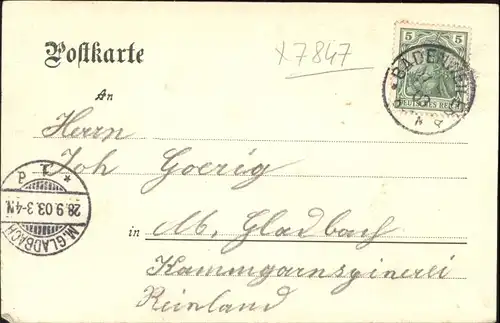 Postkarte
x7847
5
BADENWEILER
DEUTSCHES REICH
An
Herrn
Joh Goerig
P T. *
28.9.03.3-4N.
M. GLADBACH
in M. Gladbach
Kammgarnspinerei
Reinland